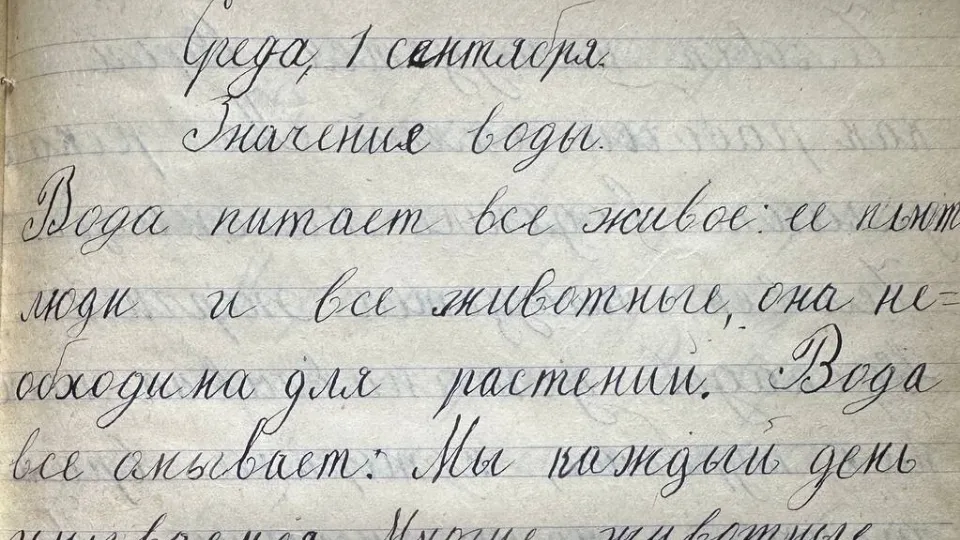 Среда, 1 сентября.
Значение воды.
Вода питает все живое: ее пьют
люди и все животные, она не=
обходима для растений. Вода
все омывает: Мы каждый день
умываемся. Многие животные